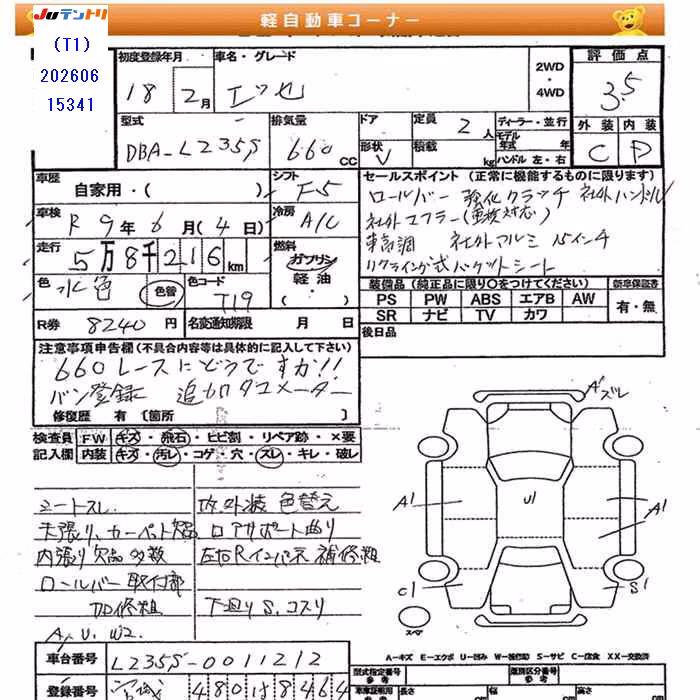 JUテントリ
軽自動車コーナー
(T1)
202606
15341
初度登録年月
18
2月
車名・グレード
エッセ
2WD
・
4WD
評価点
3.5
外装
内装
C
D
型式
DBA-L235S
排気量
660cc
ドア
形状
V
定員
2人
積載
kg
ディーラー・並行
モデル
年式
年
ハンドル 左・右
車歴
自家用・( )
シフト
F5
車検
R9年6月(4日)
冷房
A/C
走行
5万8千216km
燃料
ガソリン
軽油
色
水色
色替
色コード
T19
R券
8240円
名変通知期限 月 日
セールスポイント (正常に機能するものに限ります)
ロールバー 強化クラッチ 社外ハンドル
社外マフラー(車検対応)
車高調 社外アルミ 15インチ
リクライニング式バケットシート
装備品(純正品に限り○をつけてください)
新車保証書
PS PW ABS エアB AW
SR ナビ TV カワ
有・無
後日品
注意事項申告欄(不具合内容等は具体的に記入して下さい)
660レースにどうですか!!
バン登録 追加タコメーター
修復歴 有〔箇所
検査員
記入欄
FW キズ・飛石・ヒビ割・リペア跡・×要
内装 キズ・汚レ・コゲ・穴・スレ・キレ・破レ
シートスレ
天張り、カーペット欠品
内張り欠品多数
ロールバー取付部
加修粗
A、U、W2
内外装色替え
ロアサポート曲り
左右Rインパネ補修粗
下廻りS、コスリ
A'ズレ
A1
U1
A1
C1
S1
スペア
A-キズ E-エクボ U-凹み W-補修跡 S-サビ C-腐食 XX-交換済
車台番号
L235S-0011212
登録番号
宮城 480 は 8464
型式指定番号
類別区分番号
車庫証明用
(参考)
長さ
cm
幅
cm
高さ
cm